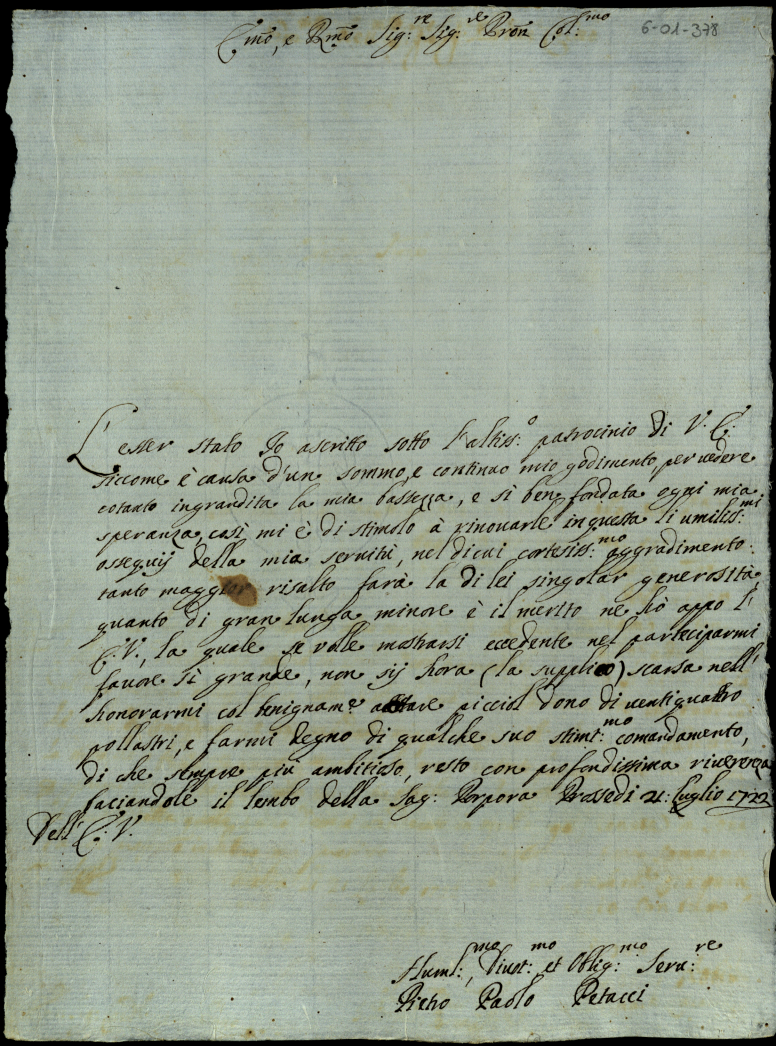 6-01-378
Em̃o, e Rm̃o Sig:re Sig:re Pron̄ Col:mo
L'esser stato Io ascritto sotto l'altiss:o patrocinio di V. E:
siccome è causa d'un sommo, e continuo mio godimento, per vedere
cotanto ingrandita la mia bassezza, e sì ben fondata ogni mia
speranza, così mi è di stimolo à rinovarle in questa li umiliss:mi
ossequij della mia servitù, nel di cui cortesiss:mo aggradimento
tanto maggior risalto farà la di lei singolar generosità,
quanto di gran lunga minore è il merito ne hò appo l'
E.V., la quale se volle mostrarsi eccedente nel parteciparmi
favore sì grande, non sij hora (la supplico) scarsa nell'
honorarmi col benignam:e accettare picciol dono di ventiquattro
pollastri, e farmi degno di qualche suo stimt:mo comandamento,
di che sempre più ambitioso, resto con profondissima riverenza
faciandole il lembo della Sag: Porpora Prossedi 21: luglio 1722
Dell' E. V.
Huml:mo, Divot:mo et Oblig:mo Serv:re
Pietro Paolo Petacci